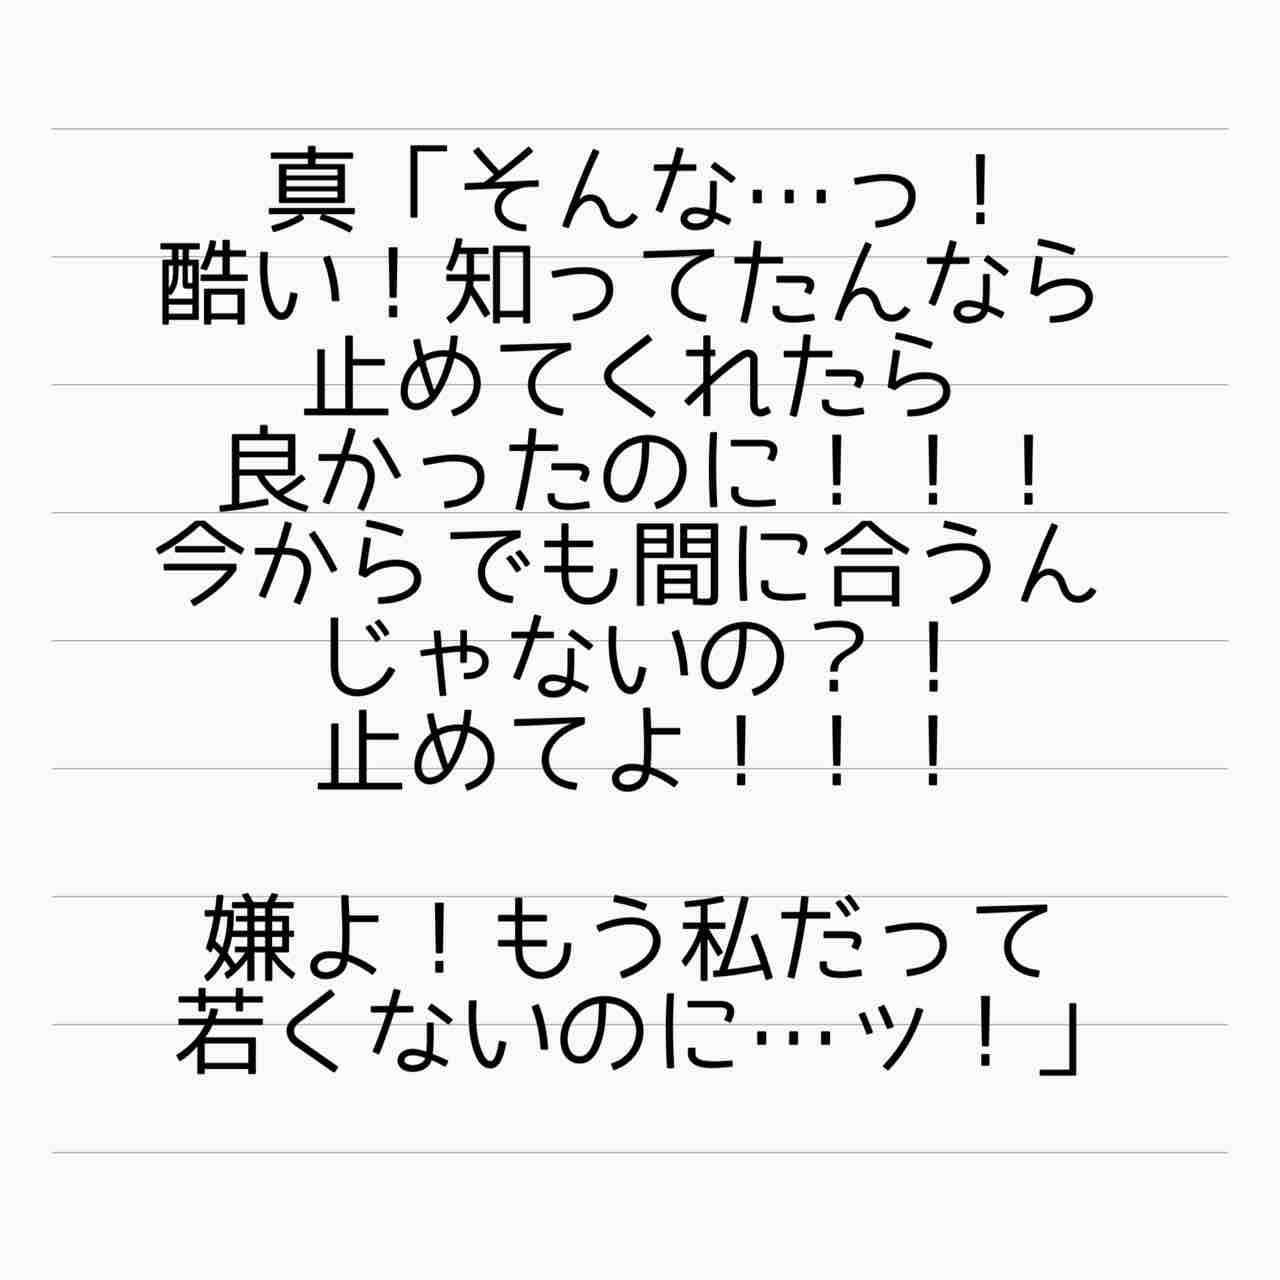 真「そんな…っ！
酷い！知ってたんなら
止めてくれたら
良かったのに！！！
今からでも間に合うん
じゃないの？！
止めてよ！！！
嫌よ！もう私だって
若くないのに…ッ！」